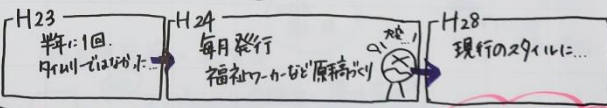 H23
半年に1回.
タイムリーではなかった…
H24
毎月発行
福祉ワーカーなど原稿づくり
大変…!
H28
現行のスタイルに…